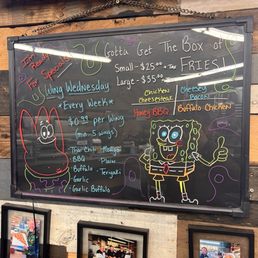 Gotta Get The Box of
FRIES!
Small - $25.00
Large - $35.00
Wing Wednesday
*Every Week*
$0.99 per Wing
(mo-5 wings)
Thai Chili
- BBQ
Plain
- Buffalo
- Teriyaki
- Garlic
- Garlic Buffalo
Chicken
Cheesesteak
Cheesey
Bacon
Honey BBQ
Buffalo Chicken